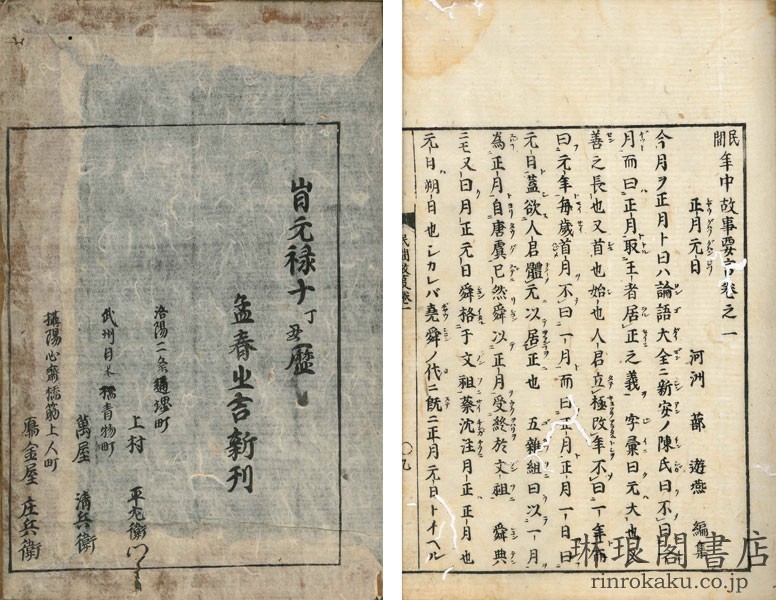 民間年中故事要言卷之一
河洲 蔀 遊燕 編集
正月元日
今月ヲ正月ト曰ハ論語大全ニ新安ノ陳氏曰不曰一
月而曰正月取王者居正之義 字彙曰元大也又
善之長也又首也始也人君立極改年不曰一年而
曰元年毎歳首月不曰一月而曰正月正月一日曰
元日蓋欲人君體元以居正也 五雜組曰以一月
為正月自唐虞已然舜以正月受終於文祖 舜典
ニモ又曰月正元日舜格于文祖蔡沈注月正正月也
元日朔日也シカレバ堯舜ノ代ニ既ニ正月元日トトナヘル
民間故事卷一
〇九
旹元禄十丁丑暦
孟春之吉新刊
洛陽二条通堺町
上村 平左衛門
武州日本橋青物町
萬屋 清兵衛
攝陽心斎橋筋上人町
鴈金屋 庄兵衛
琳琅閣書店
rinrokaku.co.jp